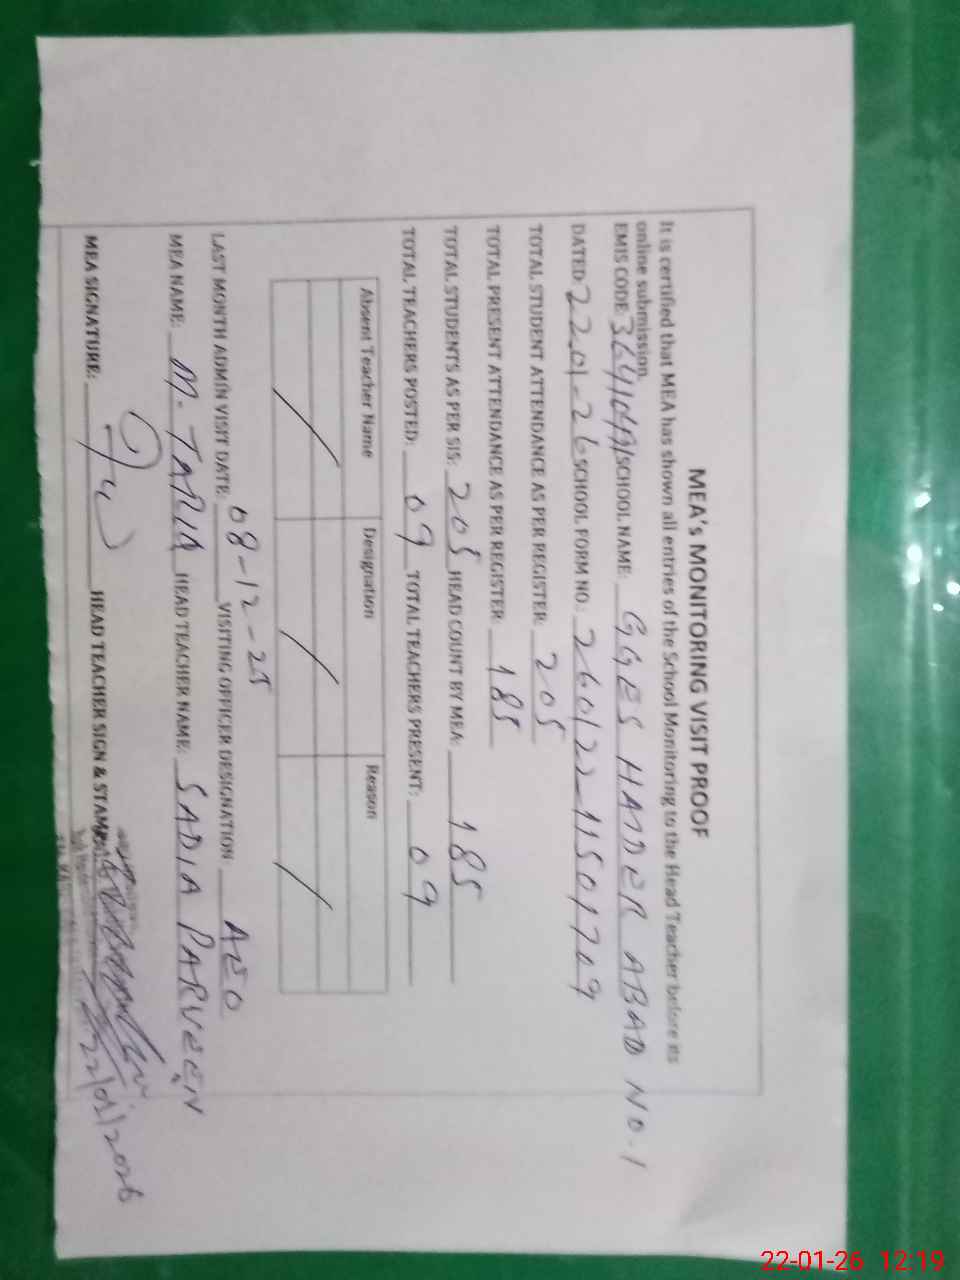 MEA's MONITORING VISIT PROOF
It is certified that MEA has shown all entries of the School Monitoring to the Head Teacher before its
online submission.
EMIS CODE: SCHOOL NAME: GGES HAIDER ABAD NO.1
DATED: 22.01-26 SCHOOL FORM NO.: 260122-11501709
TOTAL STUDENT ATTENDANCE AS PER REGISTER: 205
TOTAL PRESENT ATTENDANCE AS PER REGISTER: 185
TOTAL STUDENTS AS PER SIS: 205 HEAD COUNT BY MEA: 185
TOTAL TEACHERS POSTED: 09 TOTAL TEACHERS PRESENT: 09
Absent Teacher Name Designation Reason
LAST MONTH ADMIN VISIT DATE: 08-12-25 VISITING OFFICER DESIGNATION: AEO
MEA NAME: M. TARIQ HEAD TEACHER NAME: SADIA PARVEEN
MEA SIGNATURE: HEAD TEACHER SIGN & STAMP: 22/01/2026
22-01-26 12:19